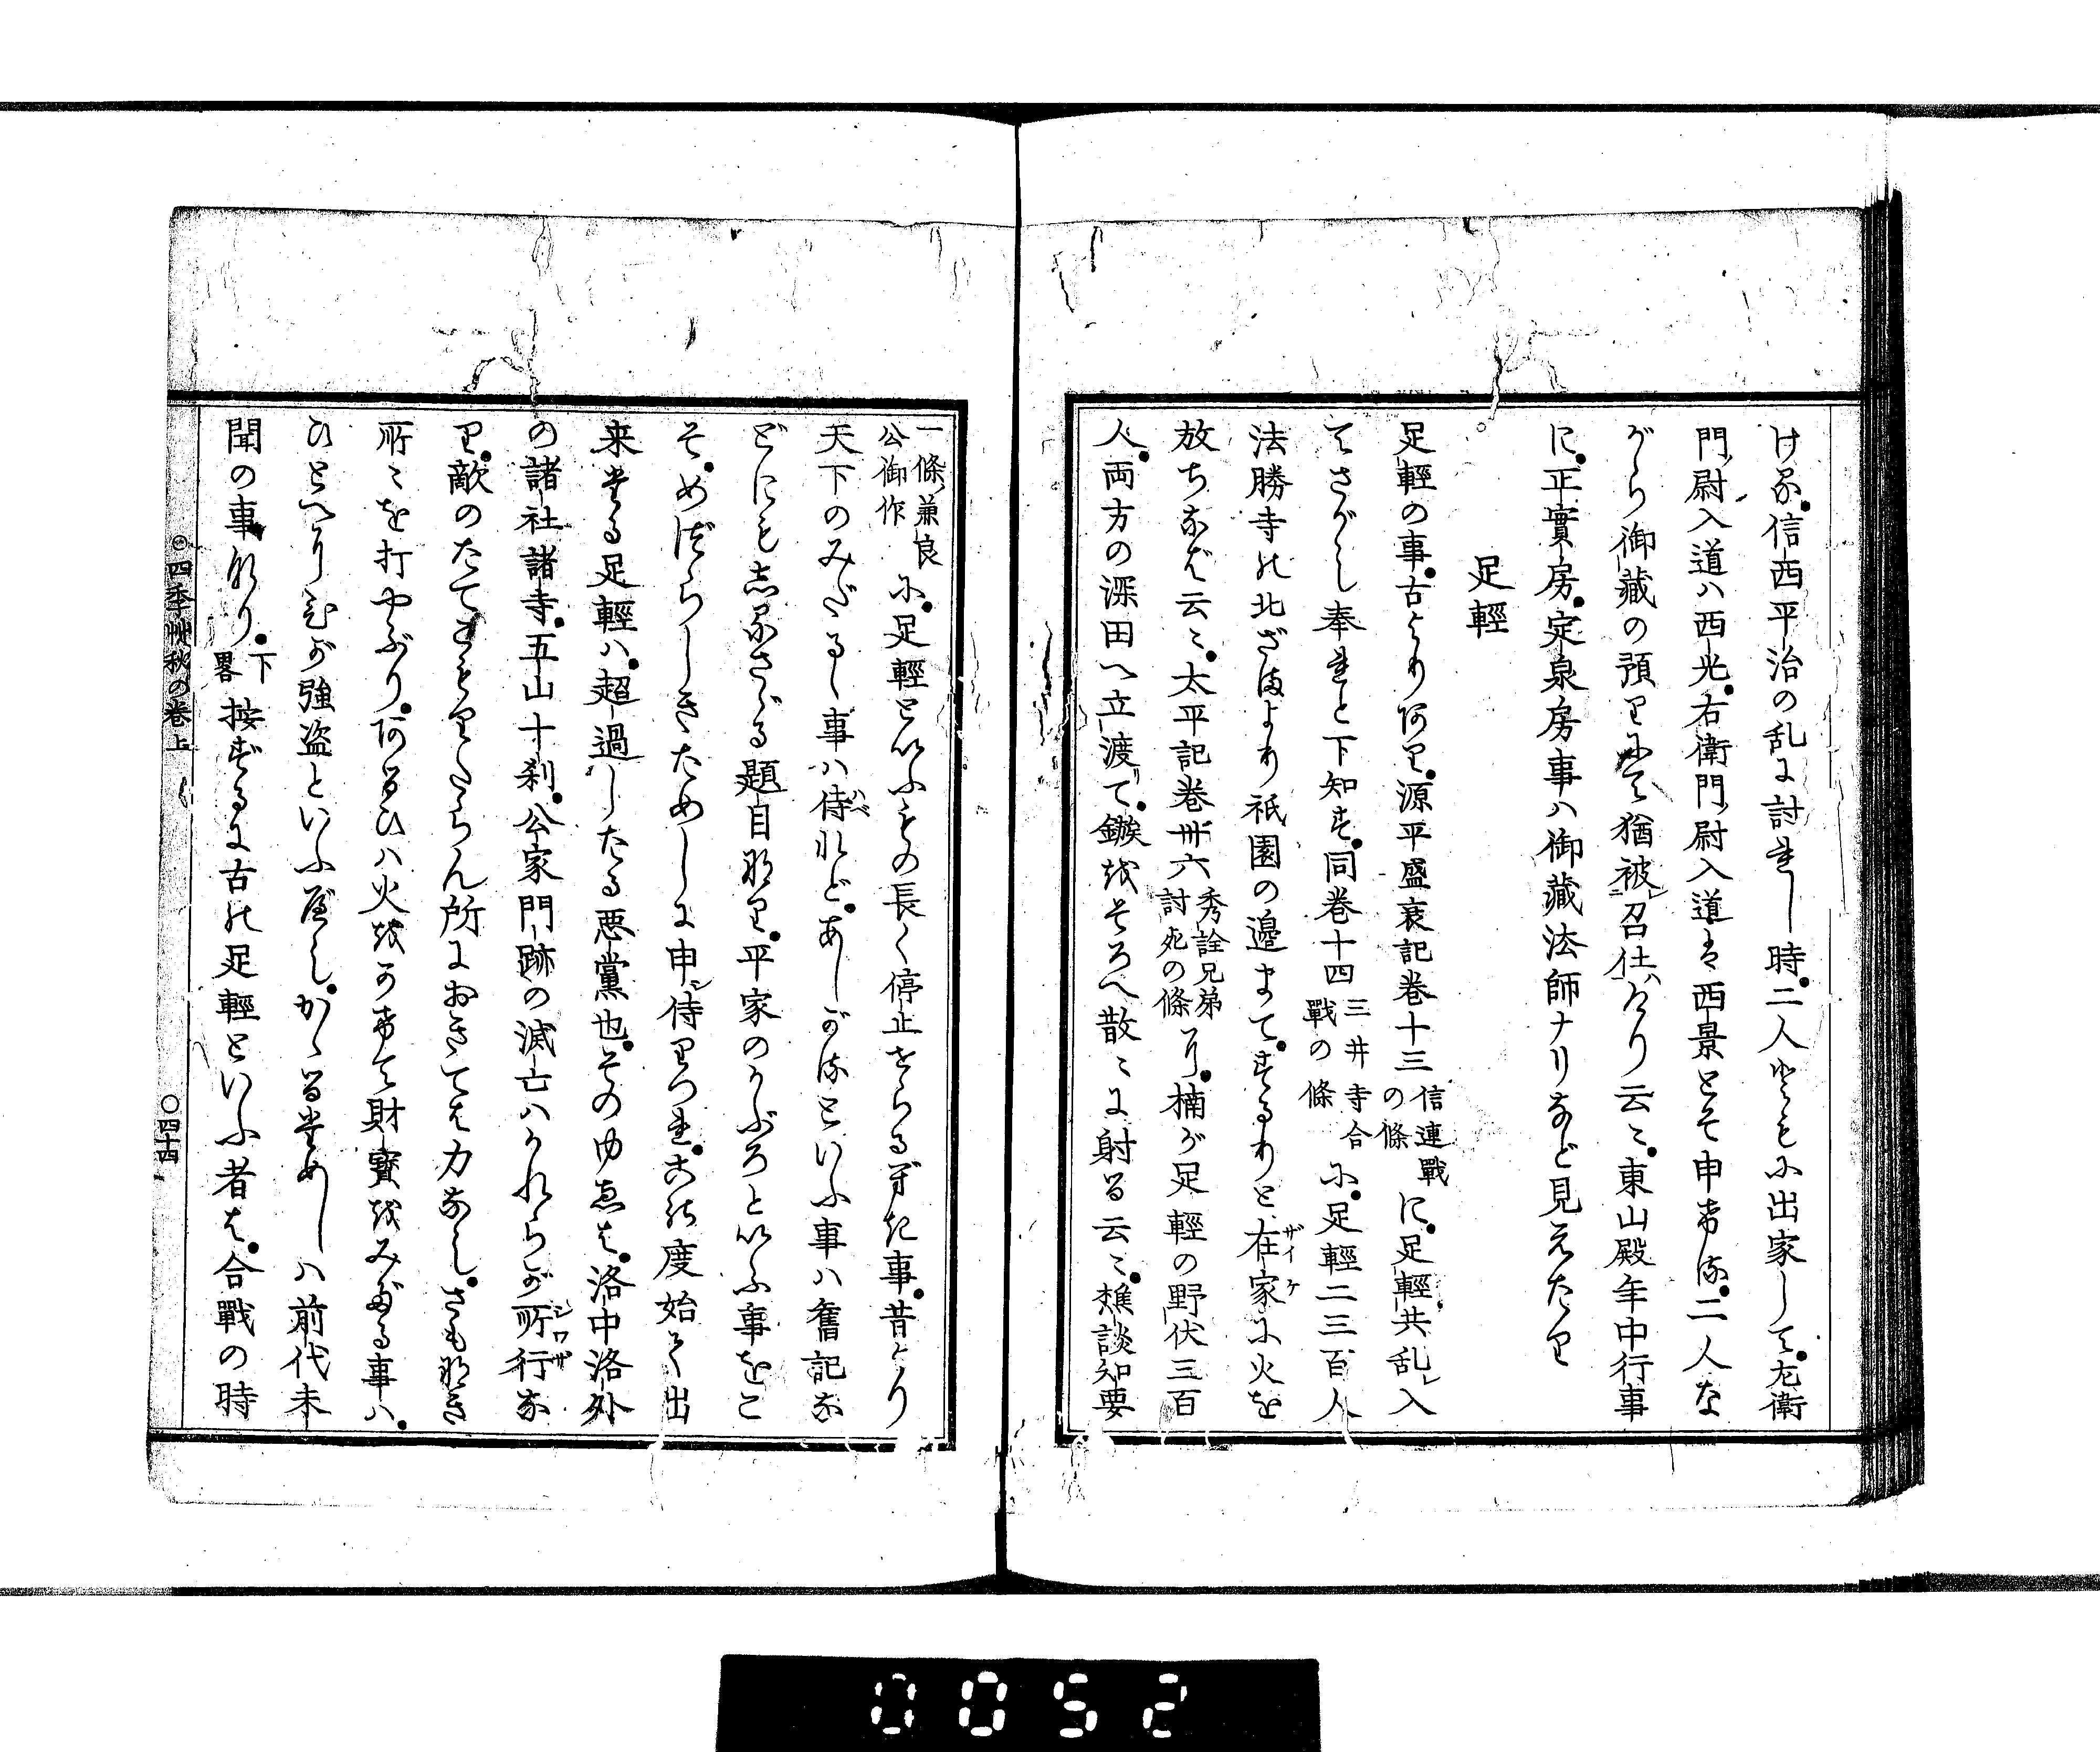 けるが信西平治の乱に討れし時二人ともに出家して左衛
門ノ尉入道ハ西光右衛門ノ尉入道は西景とそ申ける二人な
がら御藏の預りにて猶被召仕ハけり云々東山殿年中行事
に正實房定泉房事ハ御藏法師ナリなど見えたり
足輕
足輕の事古よりあり源平盛衰記卷十三信連戰の條に足輕共乱レ入
てさがし奉れと下知す同卷十四三井寺合戰の條に足輕二三百人
法勝寺の北ざまより祇園の邊まてするりと在家ザイケに火を
放ちなば云々太平記卷卅六秀詮兄弟討死の條に楠が足輕の野伏三百
人両方の深田へ立渡て鏃をそろへ散々に射る云々樵談知要
一條兼良公御作に足輕といふものゝ長く停止せらるべき事昔より
天下のみだるゝ事ハ侍ハベれどあしがるといふ事ハ舊記な
どにもしるさゞる題目なり平家のかぶろといふ事をこ
そめづらしきためしに申シ侍りつれ此度始て出
来たる足輕ハ超過したる悪黨也そのゆゑは洛中洛外
の諸社諸寺五山十刹公家門跡の滅亡ハかれらが所行シワザな
り敵のたてこもりたらん所におきては力なしさもなき
所々を打やぶりあるひハ火をかけて財寶をみだる事ハ
ひとへにひる強盗といふべしかゝるためしハ前代未
聞の事なり下畧按ずるに古の足輕といふ者は合戰の時
四季艸秋の卷上
四十四
0052